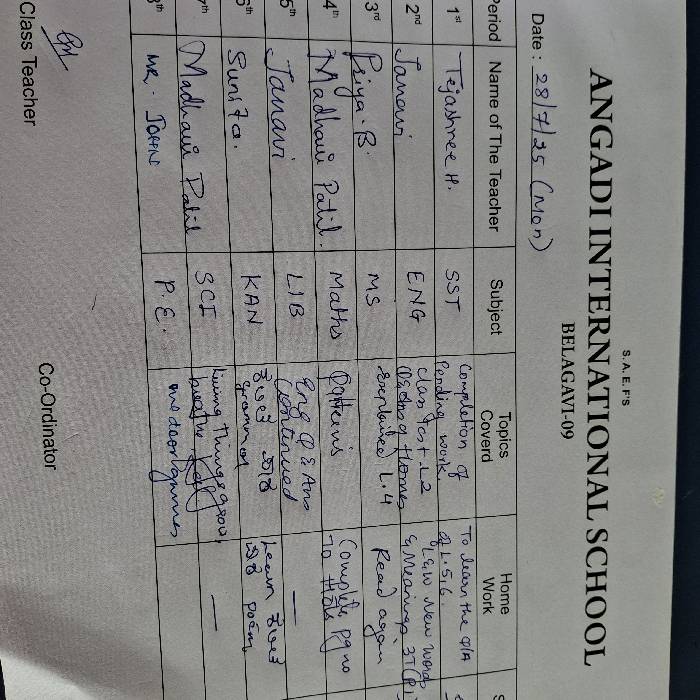 S. A. E. F'S
ANGADI INTERNATIONAL SCHOOL
BELAGAVI-09
Date : 28/7/25 (Mon)
Period Name of The Teacher Subject Topics Coverd Home Work
1st Tejashree H. SST Completion of Pending work. To learn the Q/A of L.5,6.
2nd Janavi ENG class test L2 L&W New words & Meanings 3T
3rd Priya. B. MS Explained L.4 Read again
4th Madhavi Patil. Maths Patterns Complete pg no
5th Janavi LIB Eng Q & Ans Continued —
6th Sunita. KAN grammar Learn poem
7th Madhavi Patil SCI Living things grow, breathe —
8th MR. John P.E. indoor games
Class Teacher Co-Ordinator